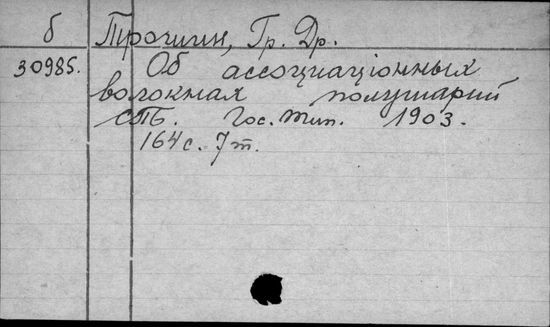 б Трошин, Гр. Др.
30985. Об ассоциаціонных
волокнах полушарий
СПБ. Гос. тип. 1903.
164 с. 7 т.